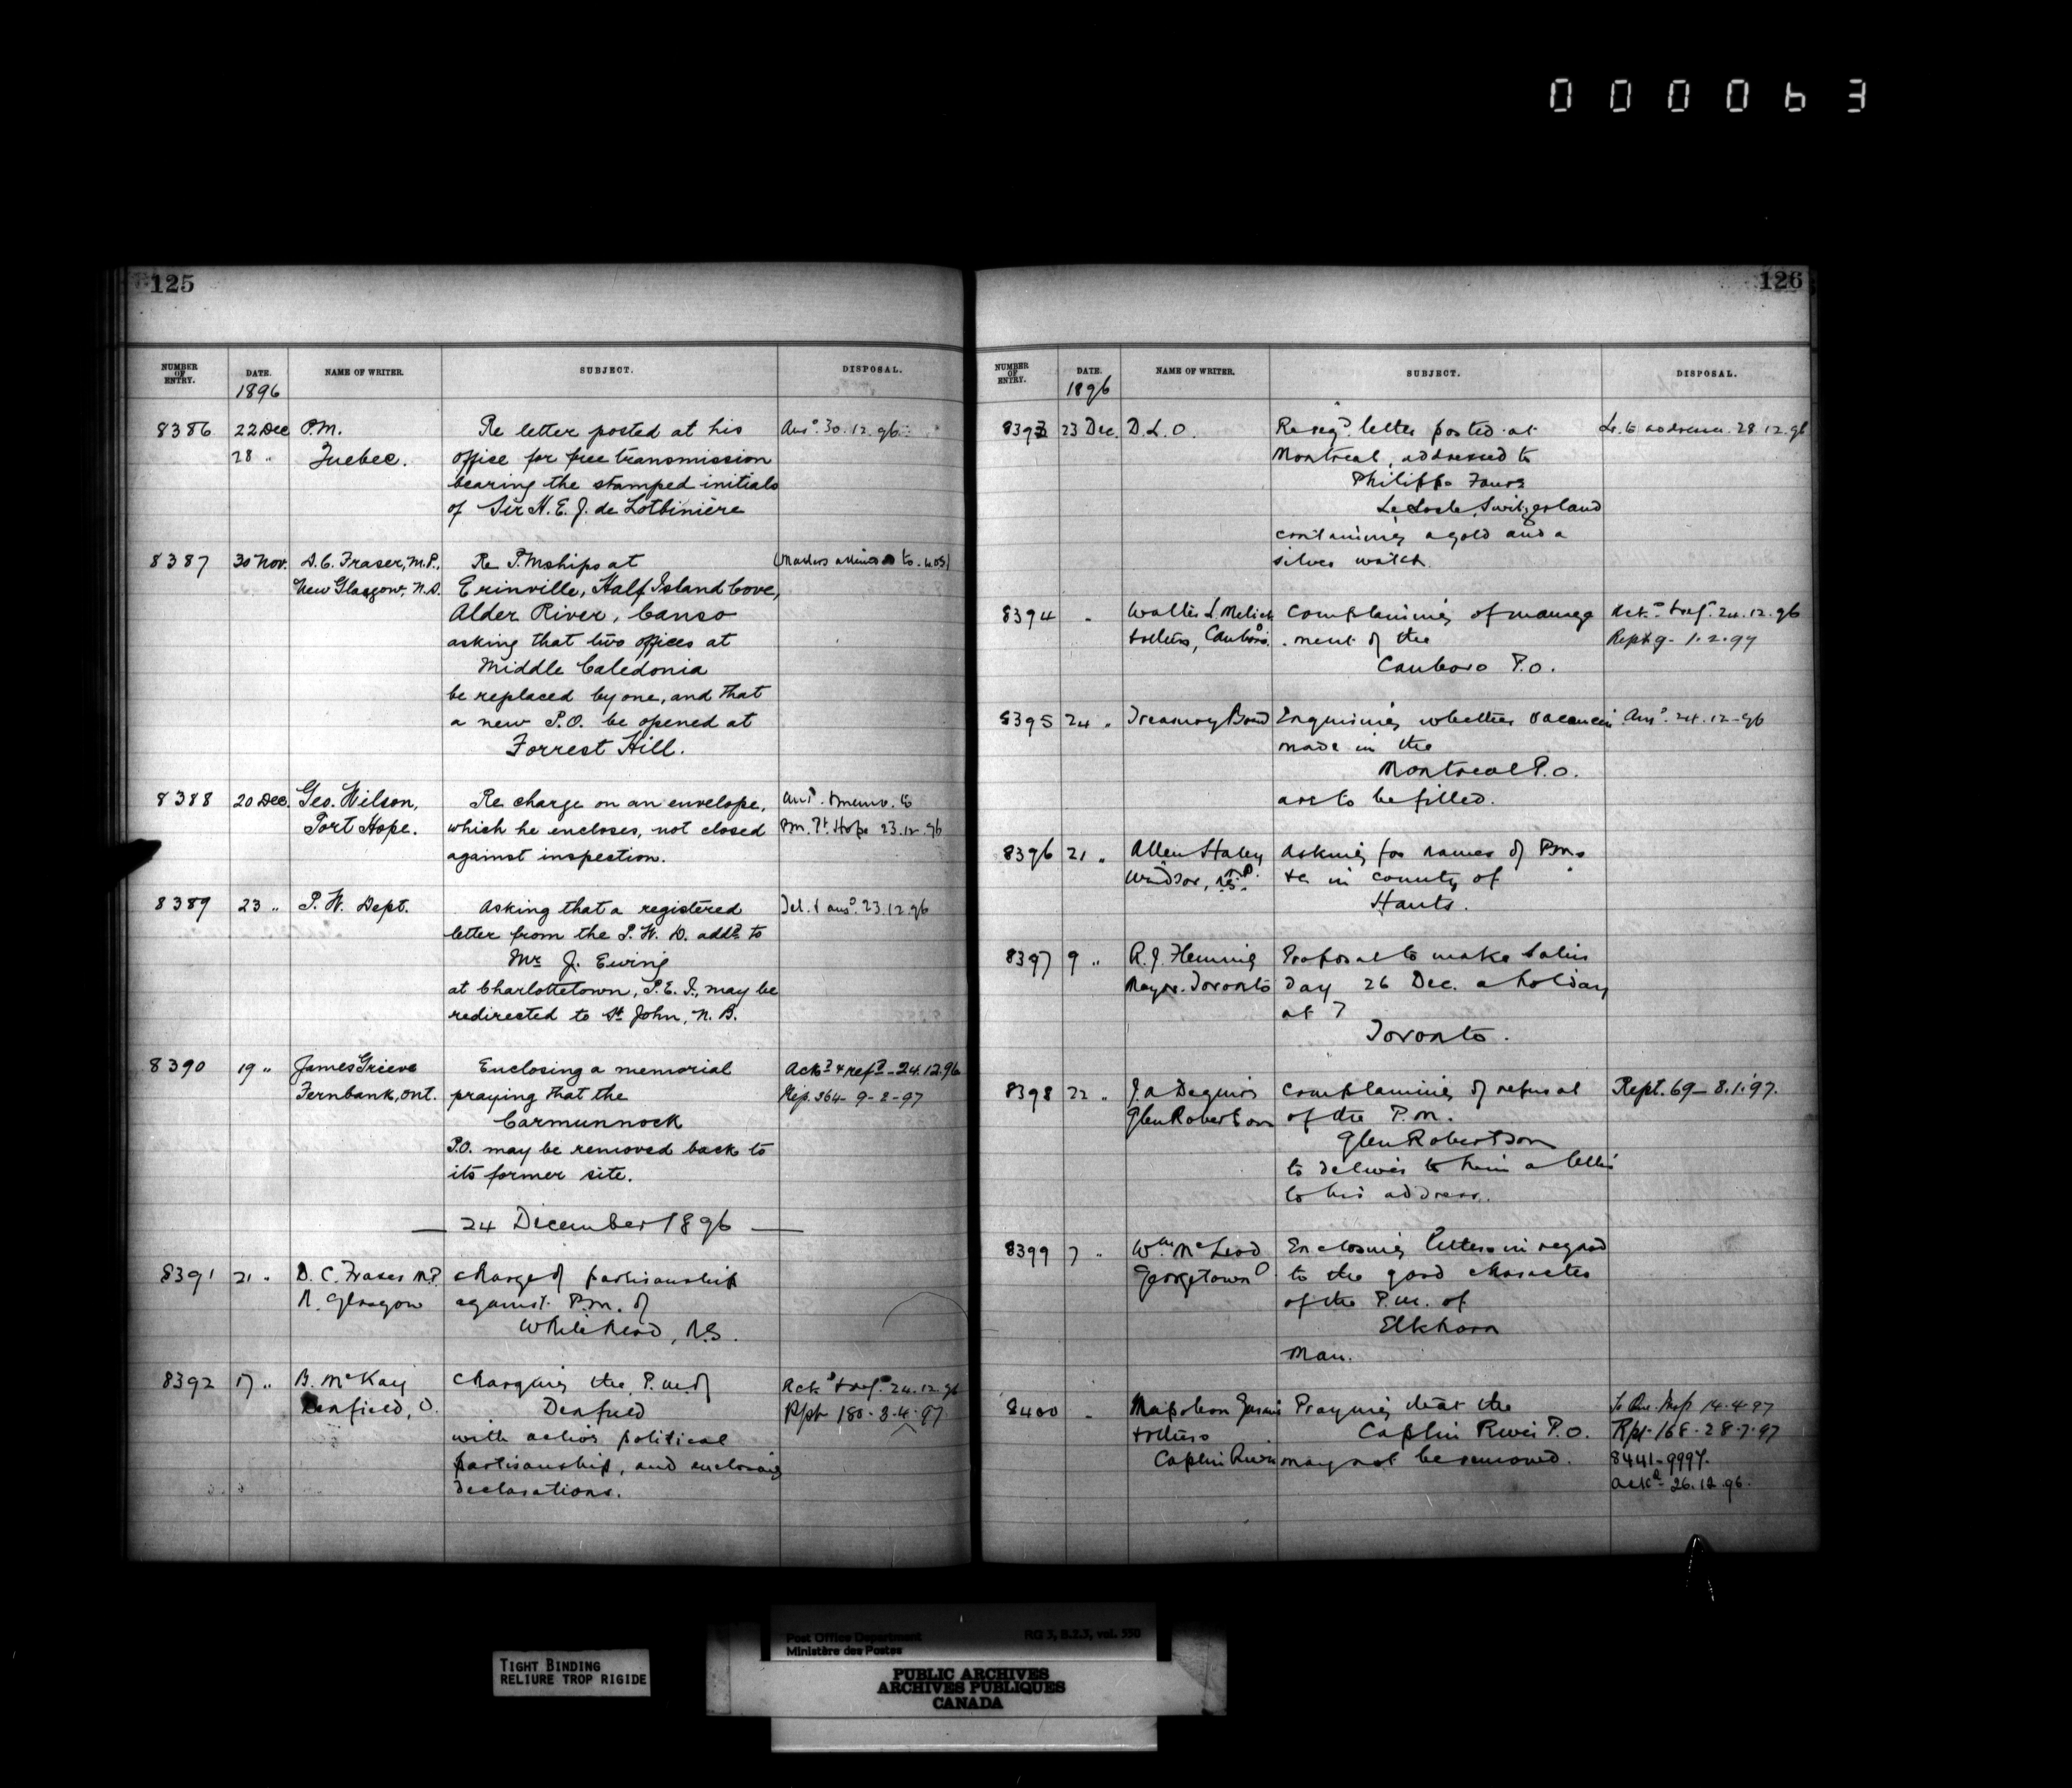 000063
125
NUMBER OF ENTRY. DATE. NAME OF WRITER. SUBJECT. DISPOSAL.
1896
8386 22 Dec P.M. Re letter posted at his Ansd. 30.12.96
28 " Quebec. office for free transmission
bearing the stamped initials
of Sir H. E. J. de Lotbinière
8387 30 Nov. D. C. Fraser, M.P., Re P.Mships at
New Glasgow, N.S. Erinville, Half Island Cove,
Alder River, Canso
asking that two offices at
Middle Caledonia
be replaced by one, and that
a new P.O. be opened at
Forrest Hill.
8388 20 Dec. Geo. Wilson, Re charge on an envelope, Ansd. & memo. to
Port Hope. which he encloses, not closed P.M. Pt. Hope 23.12.96
against inspection.
8389 23 " P. W. Dept. Asking that a registered Tel. & ansd. 23.12.96
letter from the P. W. D. addd. to
Mr. J. Ewing
at Charlottetown, P.E.I., may be
redirected to St. John, N. B.
8390 19 " James Grieve Enclosing a memorial Ackd & refd - 24.12.96
Fernbank, Ont. praying that the Rep. 364 - 9-2-97
Carmunnock
P.O. may be removed back to
its former site.
— 24 December 1896 —
8391 21 " D. C. Fraser M.P. Charge of partisanship
N. Glasgow against P.M. of
Whitehead, N.S.
8392 17 " B. McKay Charging the P.M. of Ackd & refd. 24.12.96
Denfield, O. Denfield Rpt 180. 3.4.97
with active political
partisanship, and enclosing
declarations.
126
NUMBER OF ENTRY. DATE. NAME OF WRITER. SUBJECT. DISPOSAL.
1896
8393 23 Dec. D. L. O. Re regd. letter posted at Lr. to addressee 28.12.96
Montreal, addressed to
Philippe Faure
Le Locle, Switzerland
containing a gold and a
silver watch.
8394 " Walter L. Complaining of manage Ackd. & refd. 24.12.96
& others, Canboro. ment of the 1.2.97
Canboro P.O.
8395 24 " Treasury Board Enquiring whether vacancies Ansd. 24.12.96
made in the
Montreal P.O.
are to be filled.
8396 21 " Allen Haley Asking for names of P.Ms
Windsor, N.S. &c in county of
Hants.
8397 9 " R. J. Fleming Proposal to make Satur
Mayor. Toronto day 26 Dec. a holiday
at
Toronto.
8398 22 " J. A. Complaining of refusal Rept. 69 - 8.1.97.
Glen Robertson of the P.M.
Glen Robertson
to deliver to him a letter
to his address.
8399 7 " Wm McLeod Enclosing letters in regard
Georgetown O to the good character
of the P.M. of
Elkhorn
Man.
8400 " Napoleon Praying that the 14.4.97
& others Caplin River P.O. Rpt. 168 - 28.7.97
Caplin River may not be removed. 8441-9997.
Ackd. 26.12.96.
TIGHT BINDING
RELIURE TROP RIGIDE
Post Office Department RG 3, B.2.3, vol. 550
Ministère des Postes
PUBLIC ARCHIVES
ARCHIVES PUBLIQUES
CANADA